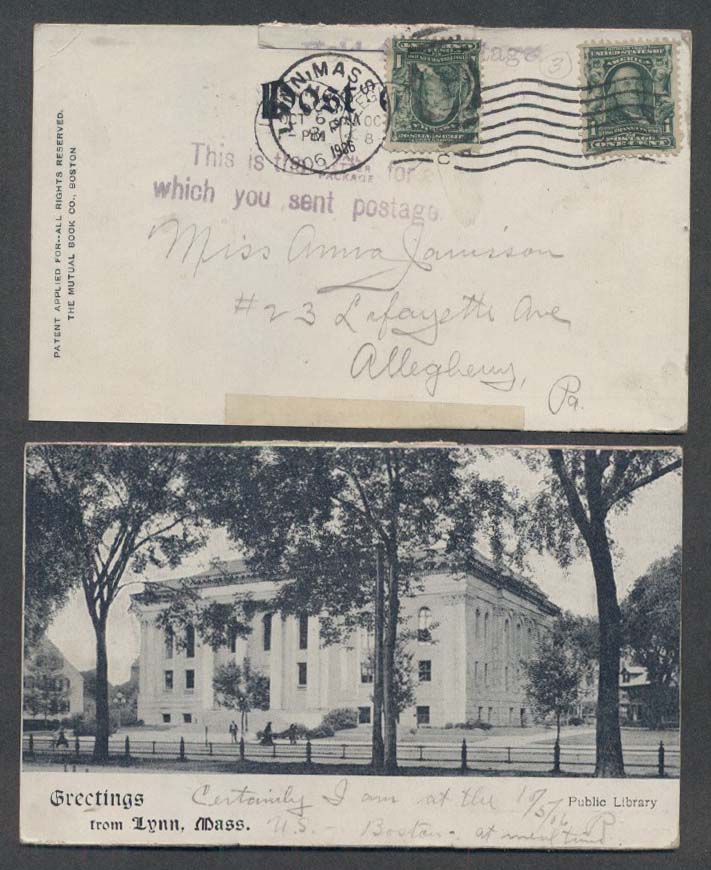 Held for postage.
3
Post
LYNN, MASS.
OCT 5
PM
1906
PACKAGE
This is for
which you sent postage.
Miss Anna Jamisson
#23 Lafayette Ave
Allegheny,
Pa.
PATENT APPLIED FOR--ALL RIGHTS RESERVED.
THE MUTUAL BOOK CO., BOSTON
UNITED STATES OF AMERICA
POSTAGE ONE CENT
Greetings
from Lynn, Mass.
Certainly I am at the 10/5/06
U.S. - Boston - at meal time. P.
Public Library